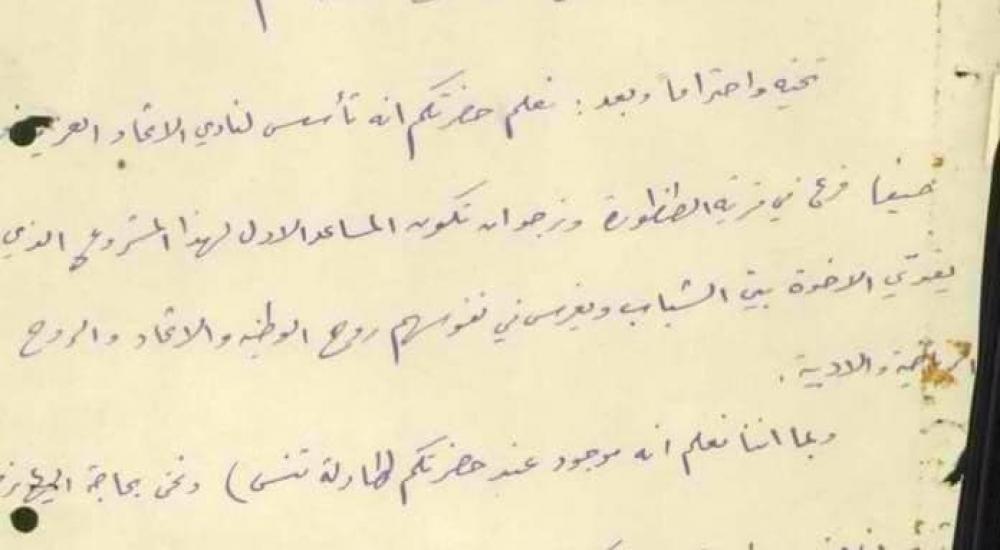 تحية واحتراما وبعد : نعلم حضرتكم انه تأسس لنادي الاتحاد العربي
حيفا فرع في قرية الطنطورة ونرجو ان تكون المساعد الاول لهذا المشروع الذي
يقوي الاخوة بين الشباب ويغرس في نفوسهم روح الوطنيه والاتحاد والروح
الرياضية والادبية .
وبما اننا نعلم انه موجود عند حضرتكم (طاولة تنس) ونحن بحاجة اليها